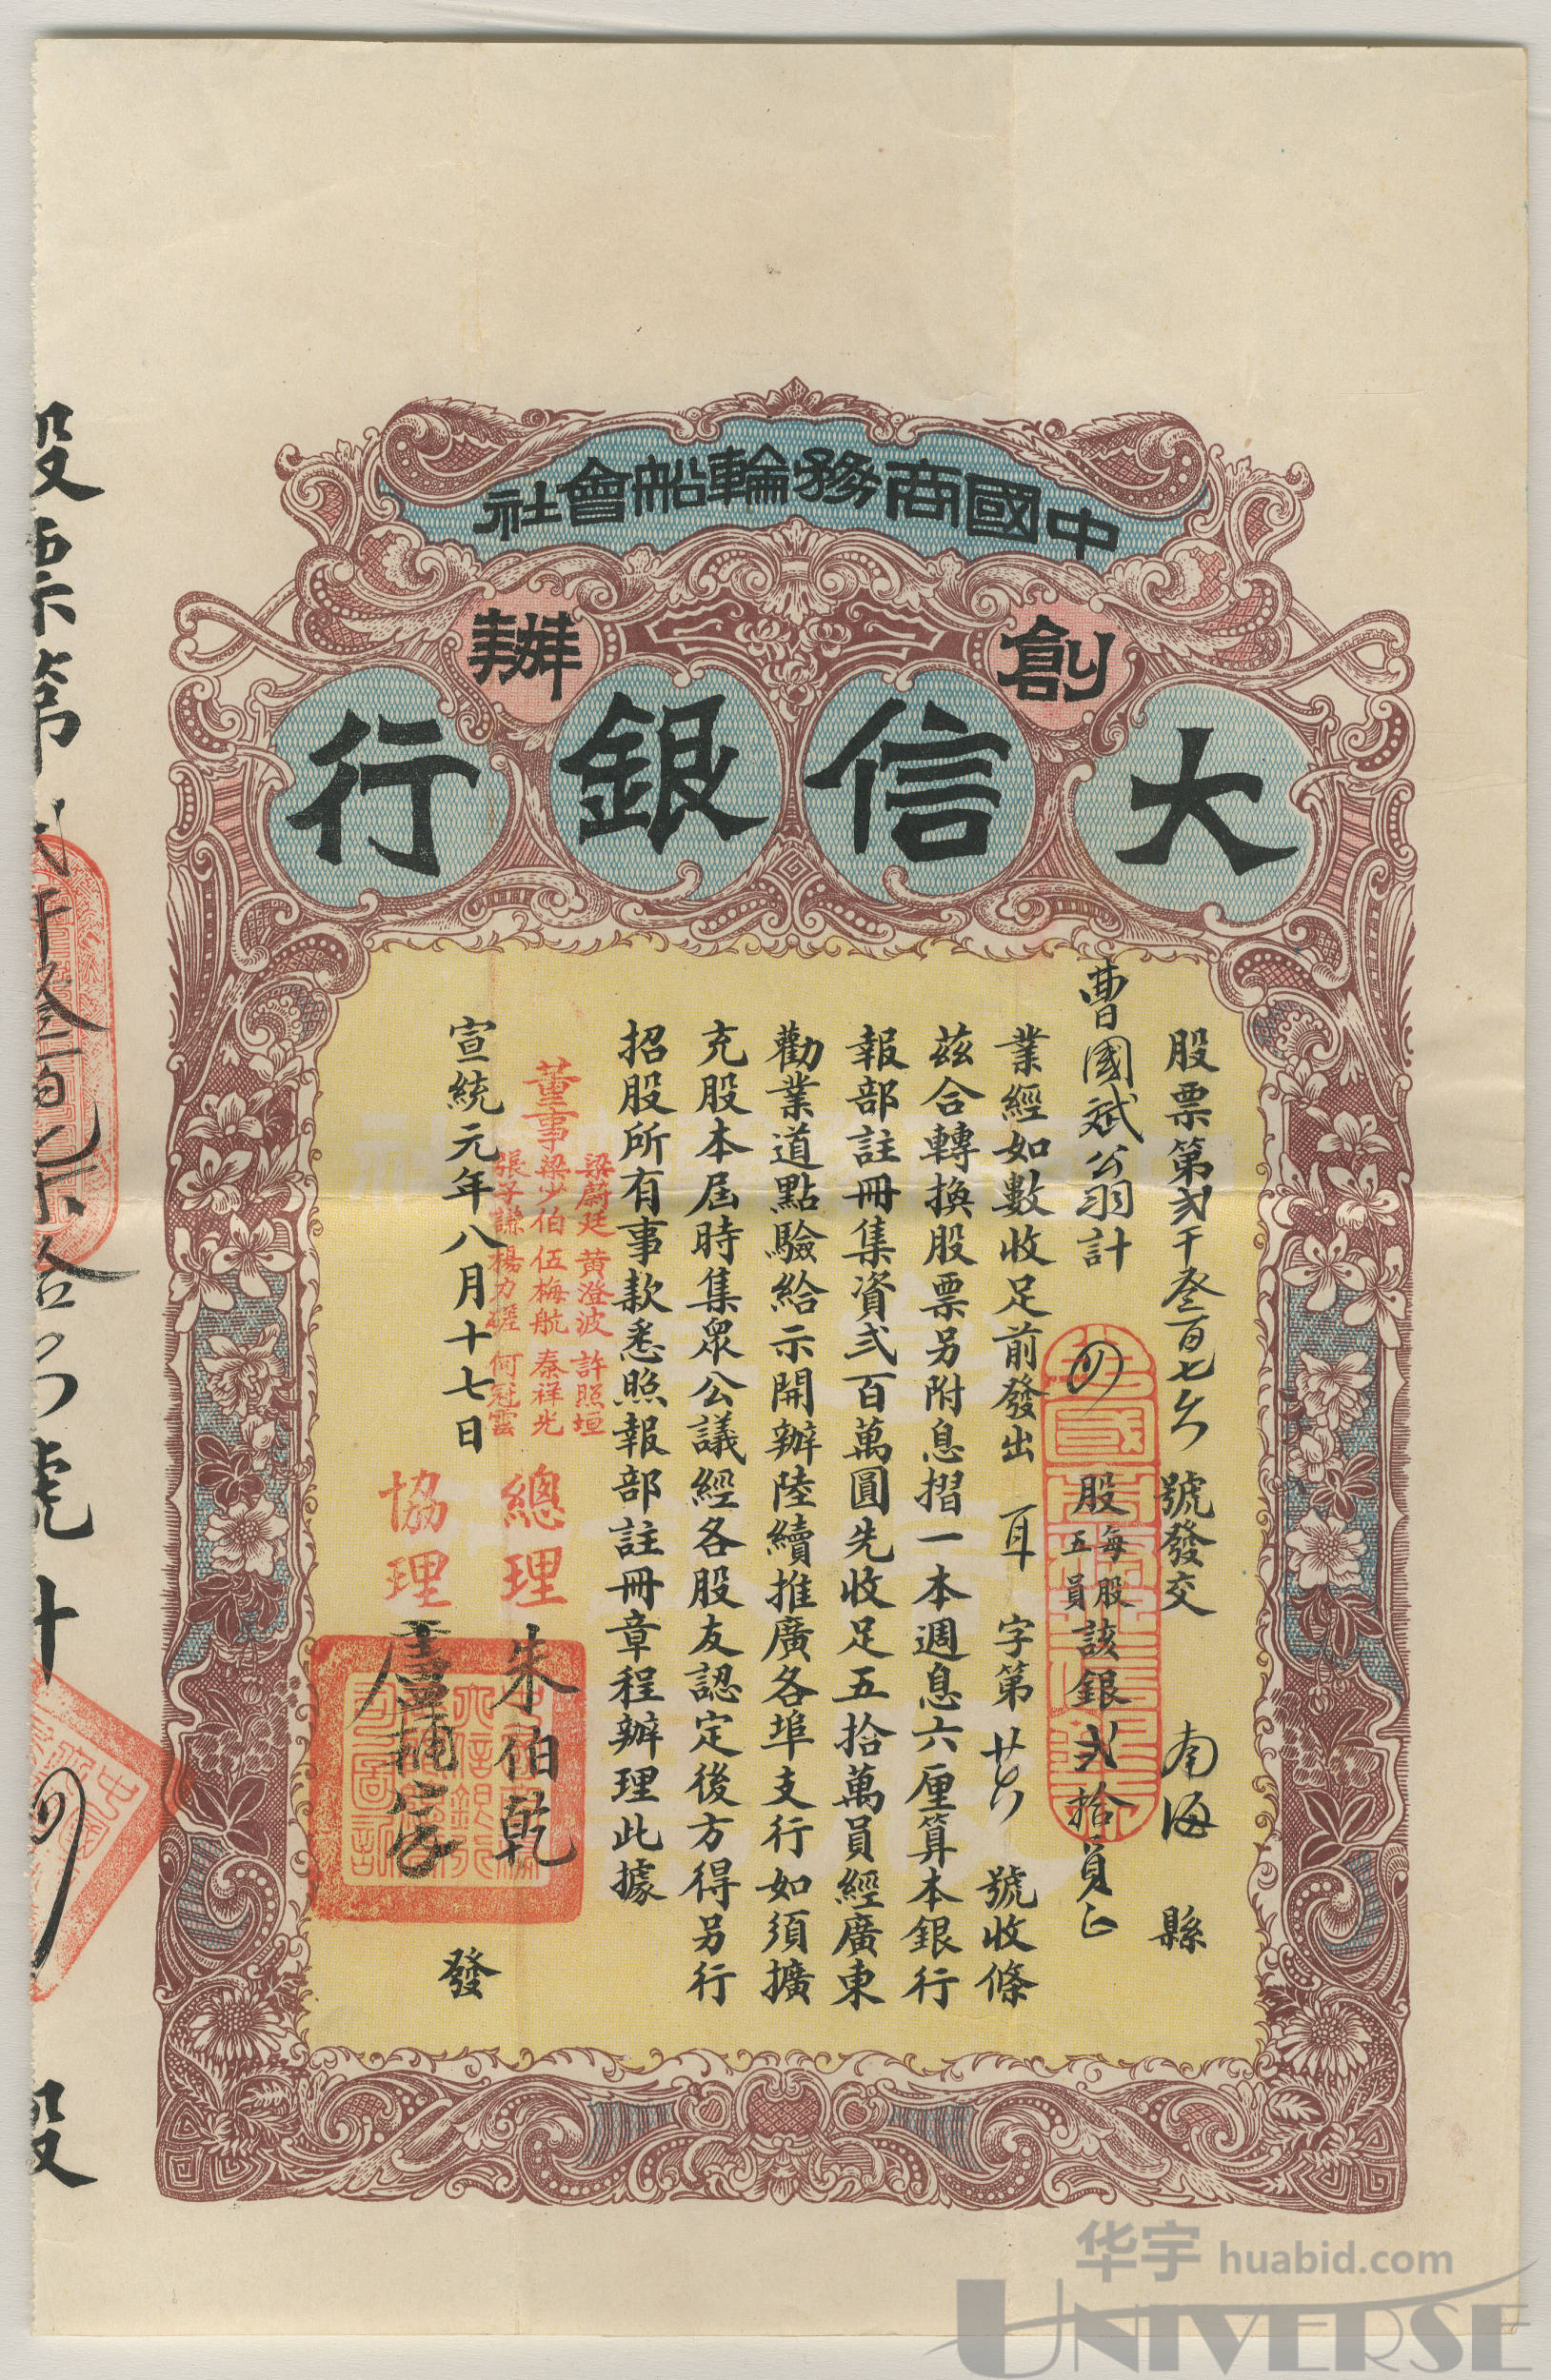 中國商務輪船會社
創辦
大信銀行
股票第弍千叁百七 號發交 南海 縣
曹國斌公翁計 股每股五員該銀弍拾員正
業經如數收足前發出 字第 號收條
茲合轉換股票另附息摺一本週息六厘算本銀行
報部註冊集資弍百萬圓先收足五拾萬員經廣東
勸業道點驗給示開辦陸續推廣各埠支行如須擴
充股本屆時集眾公議經各股友認定後方得另行
招股所有事款悉照報部註冊章程辦理此據
董事
梁蔚廷 黄澄波 許照垣
梁少伯 伍梅航 秦祥光
張子謙 楊力磋 何冠雲
總理 朱伯乾
協理
宣統元年八月十七日 發
股票第 仟叁百 拾 號計 股
华宇 huabid.com
UNIVERSE